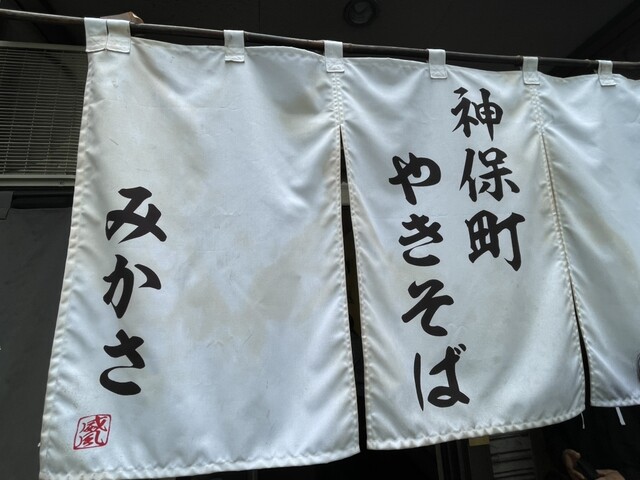 神保町
やきそば
みかさ